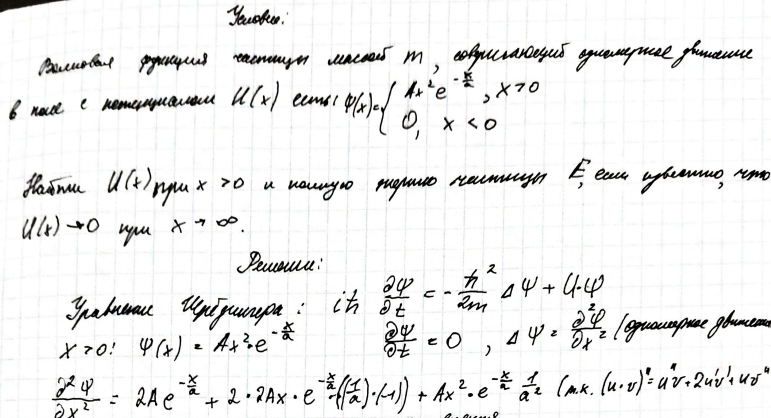 Условие:
Волновая функция частицы массой m, совершающей одномерное движение
в поле с потенциалом U(x) есть: ψ(x) = { Ax²e^(-x/a), x > 0
0, x < 0
Найти U(x) при x > 0 и полную энергию частицы E, если известно, что
U(x) → 0 при x → ∞.
Решение:
Уравнение Шрёдингера: iħ ∂Ψ/∂t = -ħ²/2m ΔΨ + U·Ψ
x > 0: Ψ(x) = Ax²·e^(-x/a) ∂Ψ/∂t = 0, ΔΨ = ∂²Ψ/∂x² (одномерное движение
∂²Ψ/∂x² = 2Ae^(-x/a) + 2·2Ax·e^(-x/a)·((1/a)·(-1)) + Ax²·e^(-x/a) 1/a² (т.к. (u·v)'' = u''v + 2u'v' + uv''